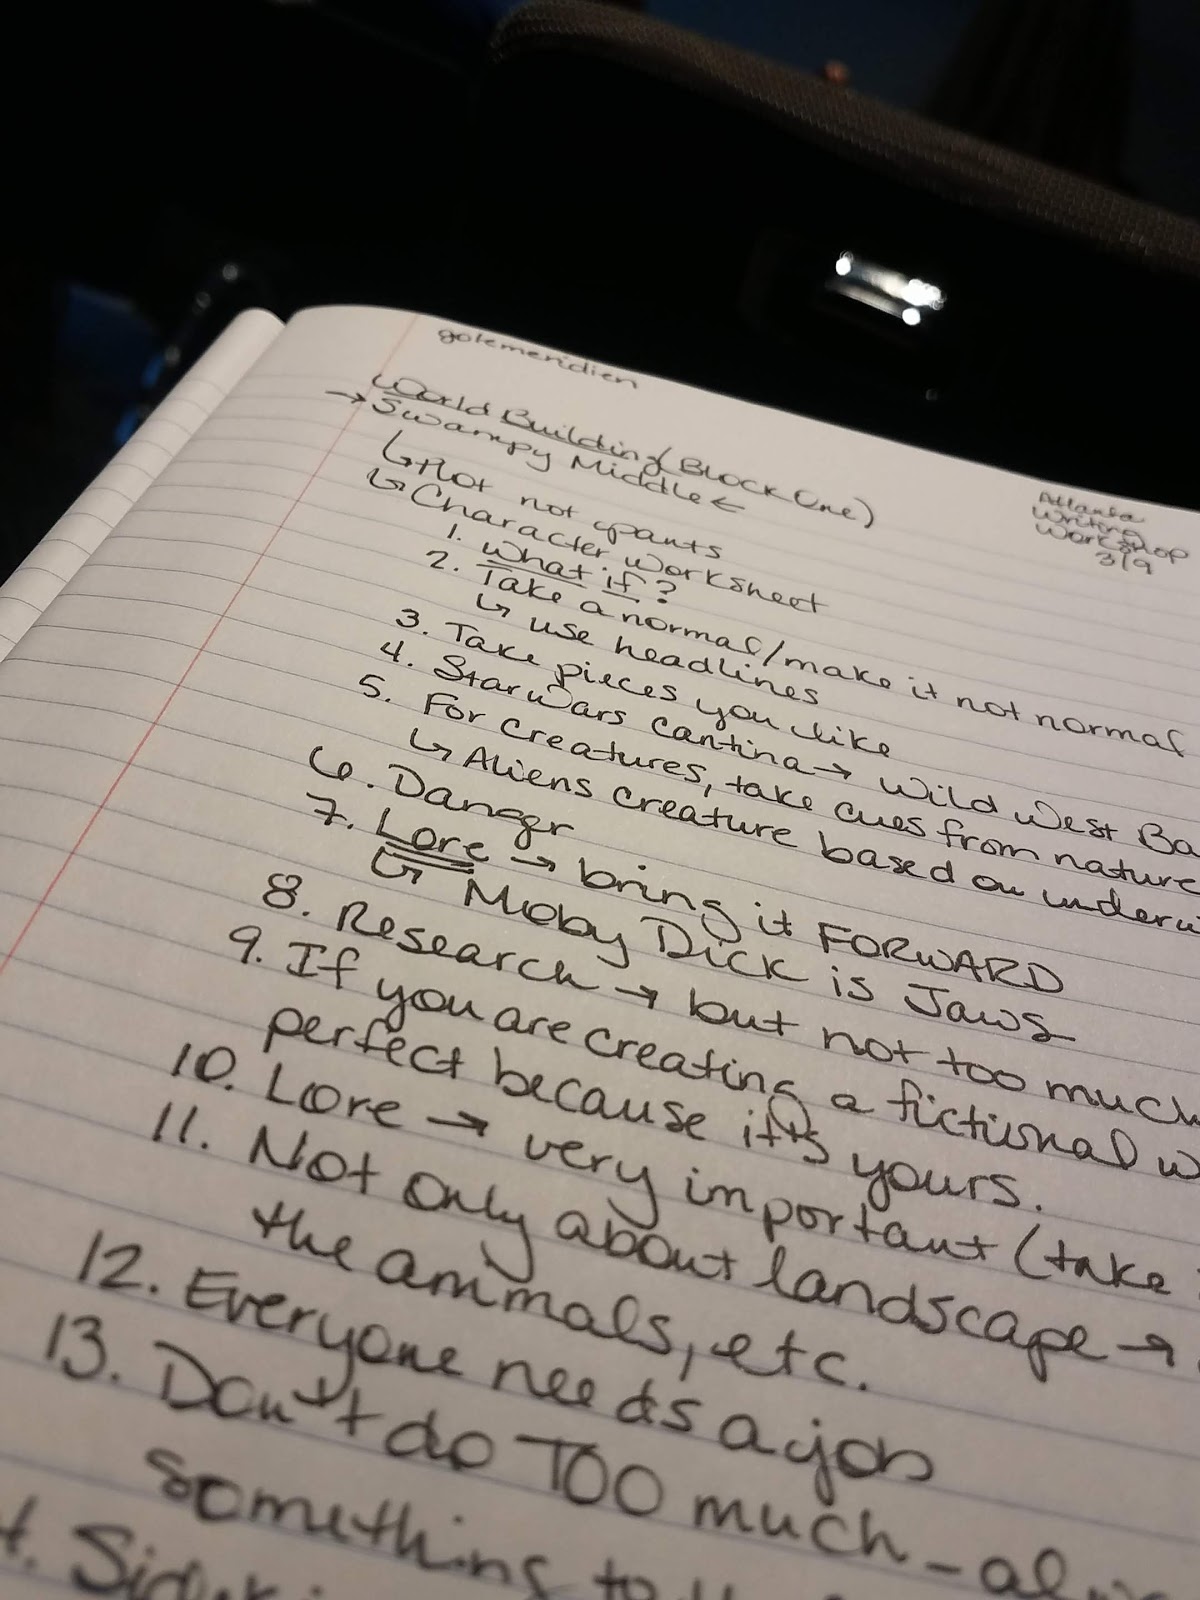 golemeridien
World Building (Block One)
→ Swampy Middle ←
↳ Plot not pants
↳ Character worksheet
Atlanta
Writing
Workshop
3/9
1. What if?
2. Take a normal/make it not normal
↳ use headlines
3. Take pieces you like
4. Star Wars cantina → Wild West Ba
5. For creatures, take cues from nature
↳ Aliens creature based on underw
6. Danger
7. Lore → bring it FORWARD
↳ Moby Dick is Jaws
8. Research → but not too much
9. If you are creating a fictional w
perfect because it's yours.
10. Lore → very important (take
11. Not only about landscape →
the animals, etc.
12. Everyone needs a job
13. Don't do TOO much - alw
something to